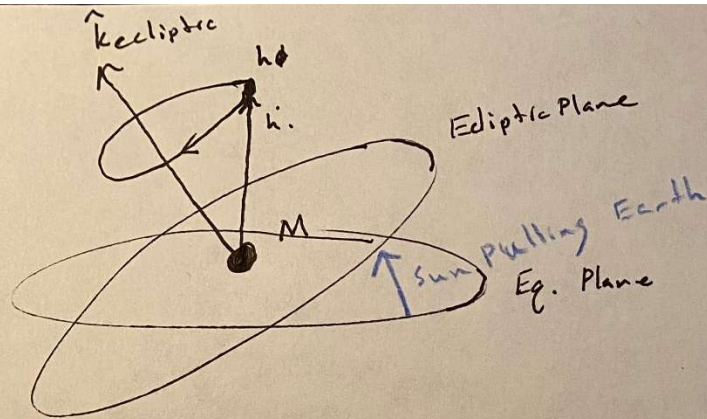 k̂ecliptic
hø
ḣ.
Ecliptic Plane
M
sun pulling Earth
Eq. Plane